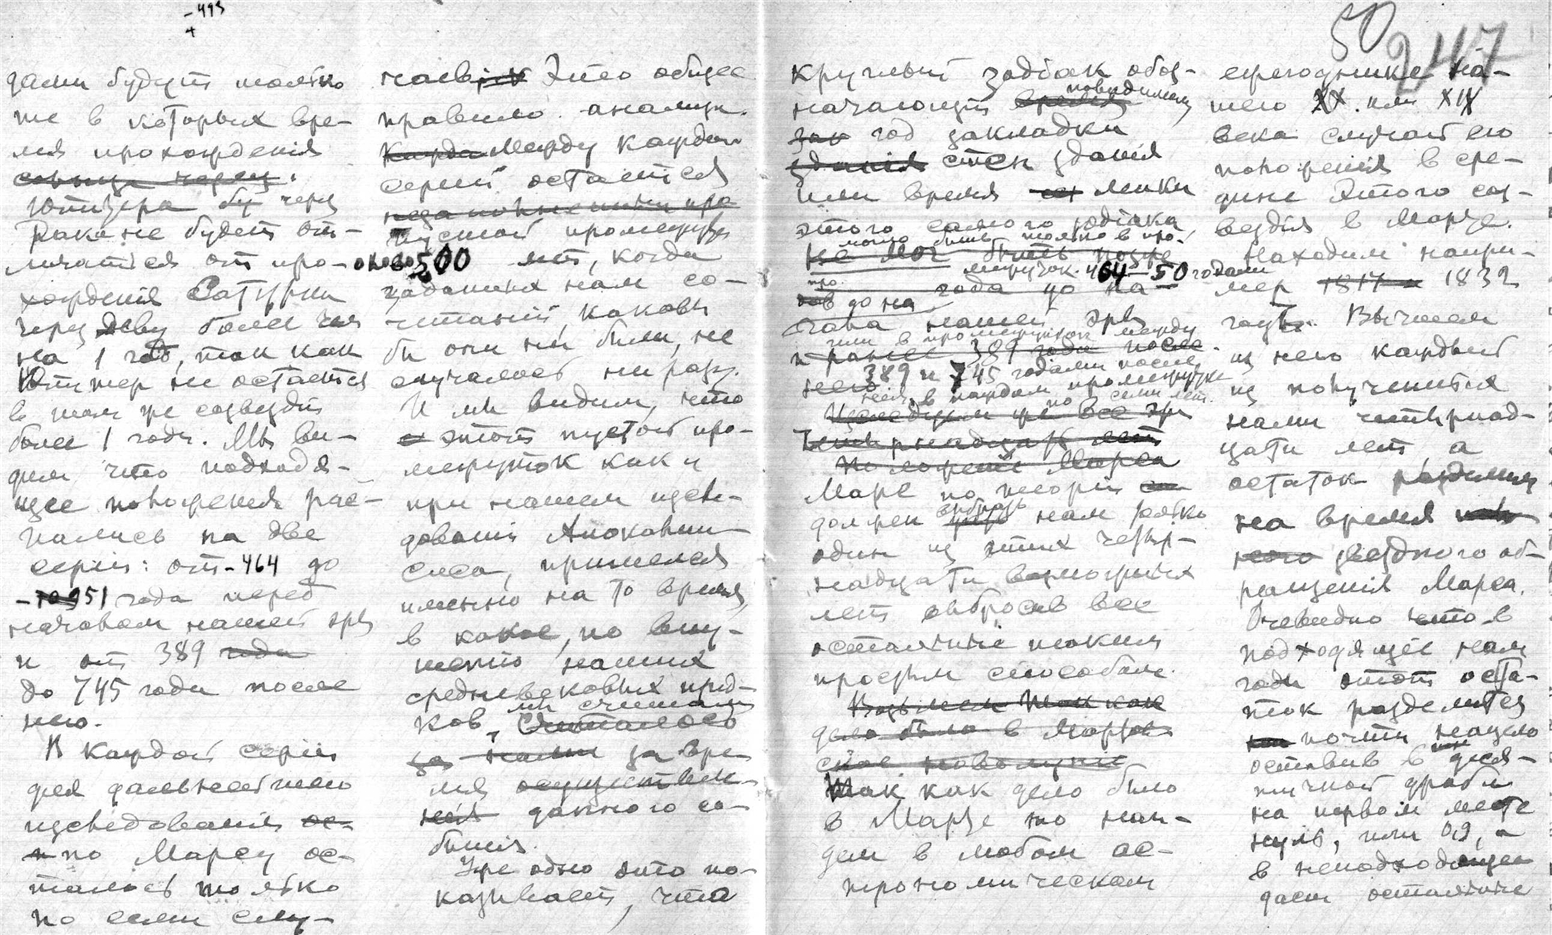 -493
+
дами будут только
же в которых вре-
мя прохождения
солнца через
Юпитера бу через
Рака не будет от-
личаться от про-
хождения Сатурна
через Деву более чем
на 1 год, так как
Юпитер не остается
в том же созвездіи
более 1 года. Мы ви-
дим что подходя-
щее положения рас-
пались на две
серіи: от -464 до
-51 года перед
началом нашей эры
и от 389 года
до 745 года после
него.
В каждой серіи
для дальнейшего
изследования ос-
по Марсу ос-
талось только
по семи слу-
чаев Это общее
правило анализ.
Между каждой
серией остается
пустой промежуток
около 500 лет, когда
заданных нам со-
четаний, каковы
бы они ни были, не
случалось ни разу.
И мы видим, что
этот пустой про-
межуток как и
при нашем изсле-
довании Апокалип-
сиса, пришелся
именно на то время,
в какое, по внушению
наших
средневековых пред-
ков, мы считали
Считалось
за нами за вре-
мя осуществле-
ния данного со-
бытія.
Уже одно это по-
казывает, что
50
247
круглый задіак обоз-
начающій время повидимому
год закладки
зданія стен зданія
или время лепки
этого самого зодіака
может быть только в про-
не мог быть позже
межуток 464-50 годами
года до на-
до на
чала нашей эры
или в промежуток между
и ранее 389 года после
389 и 745 годами после
него
нея, в каждом промежутке
по семи лет.
Изследуем же все эти
четырнадцать лет
положеніе Марса
Марс по теоріи
должен выбрать нам только
один из этих четыр-
надцати возможных
лет выбросив все
остальные таким
простым способом.
Возьмем так как
дело было в Марте
Так как дело было
в Марте то най-
дем в любом ас-
трономическом
ежегоднике на-
шего XX или XIX
века случай его
положенія в сре-
дине этого соз-
вездія в Марте.
Находим напри-
мер 1817 1832
году. Вычтем
из него каждый
из полученных
нами четырнад-
цати лет, а
остаток разделим
на время
звездного об-
ращенія Марса.
Очевидно что в
подходящіе нам
годы этот оста-
ток разделится
почти нацело
оставив в деся-
тичной дроби
на первом месте
нуль, или 0,9, а
в неподходящем
даст остальные